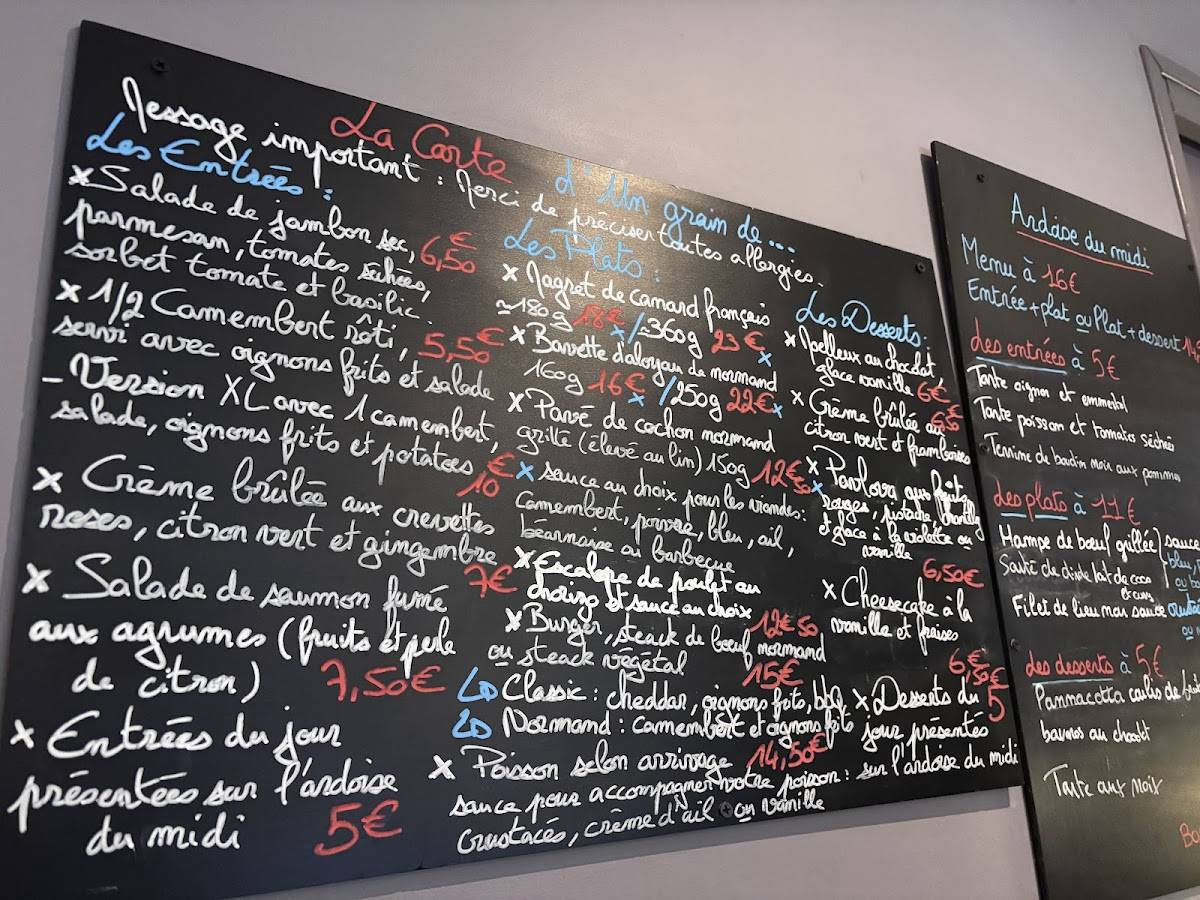 La Carte d'Un grain de...
Message important : Merci de préciser toutes allergies.
Les Entrées :
x Salade de jambon sec,
parmesan, tomates séchées, 6,50€
sorbet tomate et basilic.
x 1/2 Camembert rôti, 5,50€
servi avec oignons frits et salade
- Version XL avec 1 camembert,
salade, oignons frits et potatoes 10€
x Crème brûlée aux crevettes
roses, citron vert et gingembre
7€
x Salade de saumon fumé
aux agrumes (fruits et perle
de citron) 7,50€
x Entrées du jour
présentées sur l'ardoise
du midi 5€
Les Plats :
x Magret de canard français
≈180g 18€ x /≈360g 23€ x
x Bavette d'aloyau de normand
160g 16€ x /250g 22€ x
x Pavé de cochon normand
grillé (élevé au lin) 150g 12€50 x
x sauce au choix pour les viandes :
Camembert, poivre, bleu, ail,
béarnaise ou barbecue
x Escalope de poulet au
chorizo et sauce au choix
12€50
x Burger, steack de bœuf normand
ou steack végétal 15€
Classic : cheddar, oignons frits, bbq
Normand : camembert et oignons frits
x Poisson selon arrivage 14,50€
sauce pour accompagner votre poisson :
crustacés, crème d'ail ou vanille
Les Desserts :
x Moelleux au chocolat,
glace vanille 6€
x Crème brûlée au 6€50
citron vert et framboises
x Pavlova aux fruits
rouges, pistache, chantilly
et glace à la violette ou
vanille
6,50€
x Cheesecake à la
vanille et fraises
6,50€
x Desserts du 5
jour présentés
sur l'ardoise du midi
Ardoise du midi
Menu à 16€
Entrée + plat ou Plat + dessert
Les entrées à 5€
Tarte oignon et emmental
Tarte poisson et tomates séchées
Terrine de boudin noir aux pommes
Les plats à 11€
Hampe de bœuf grillée } sauce
Sauté de dinde lait de coco bleu,
et curry
Filet de lieu noir sauce
Les desserts à 5€
Pannacotta coulis de
au chocolat
Tarte aux noix